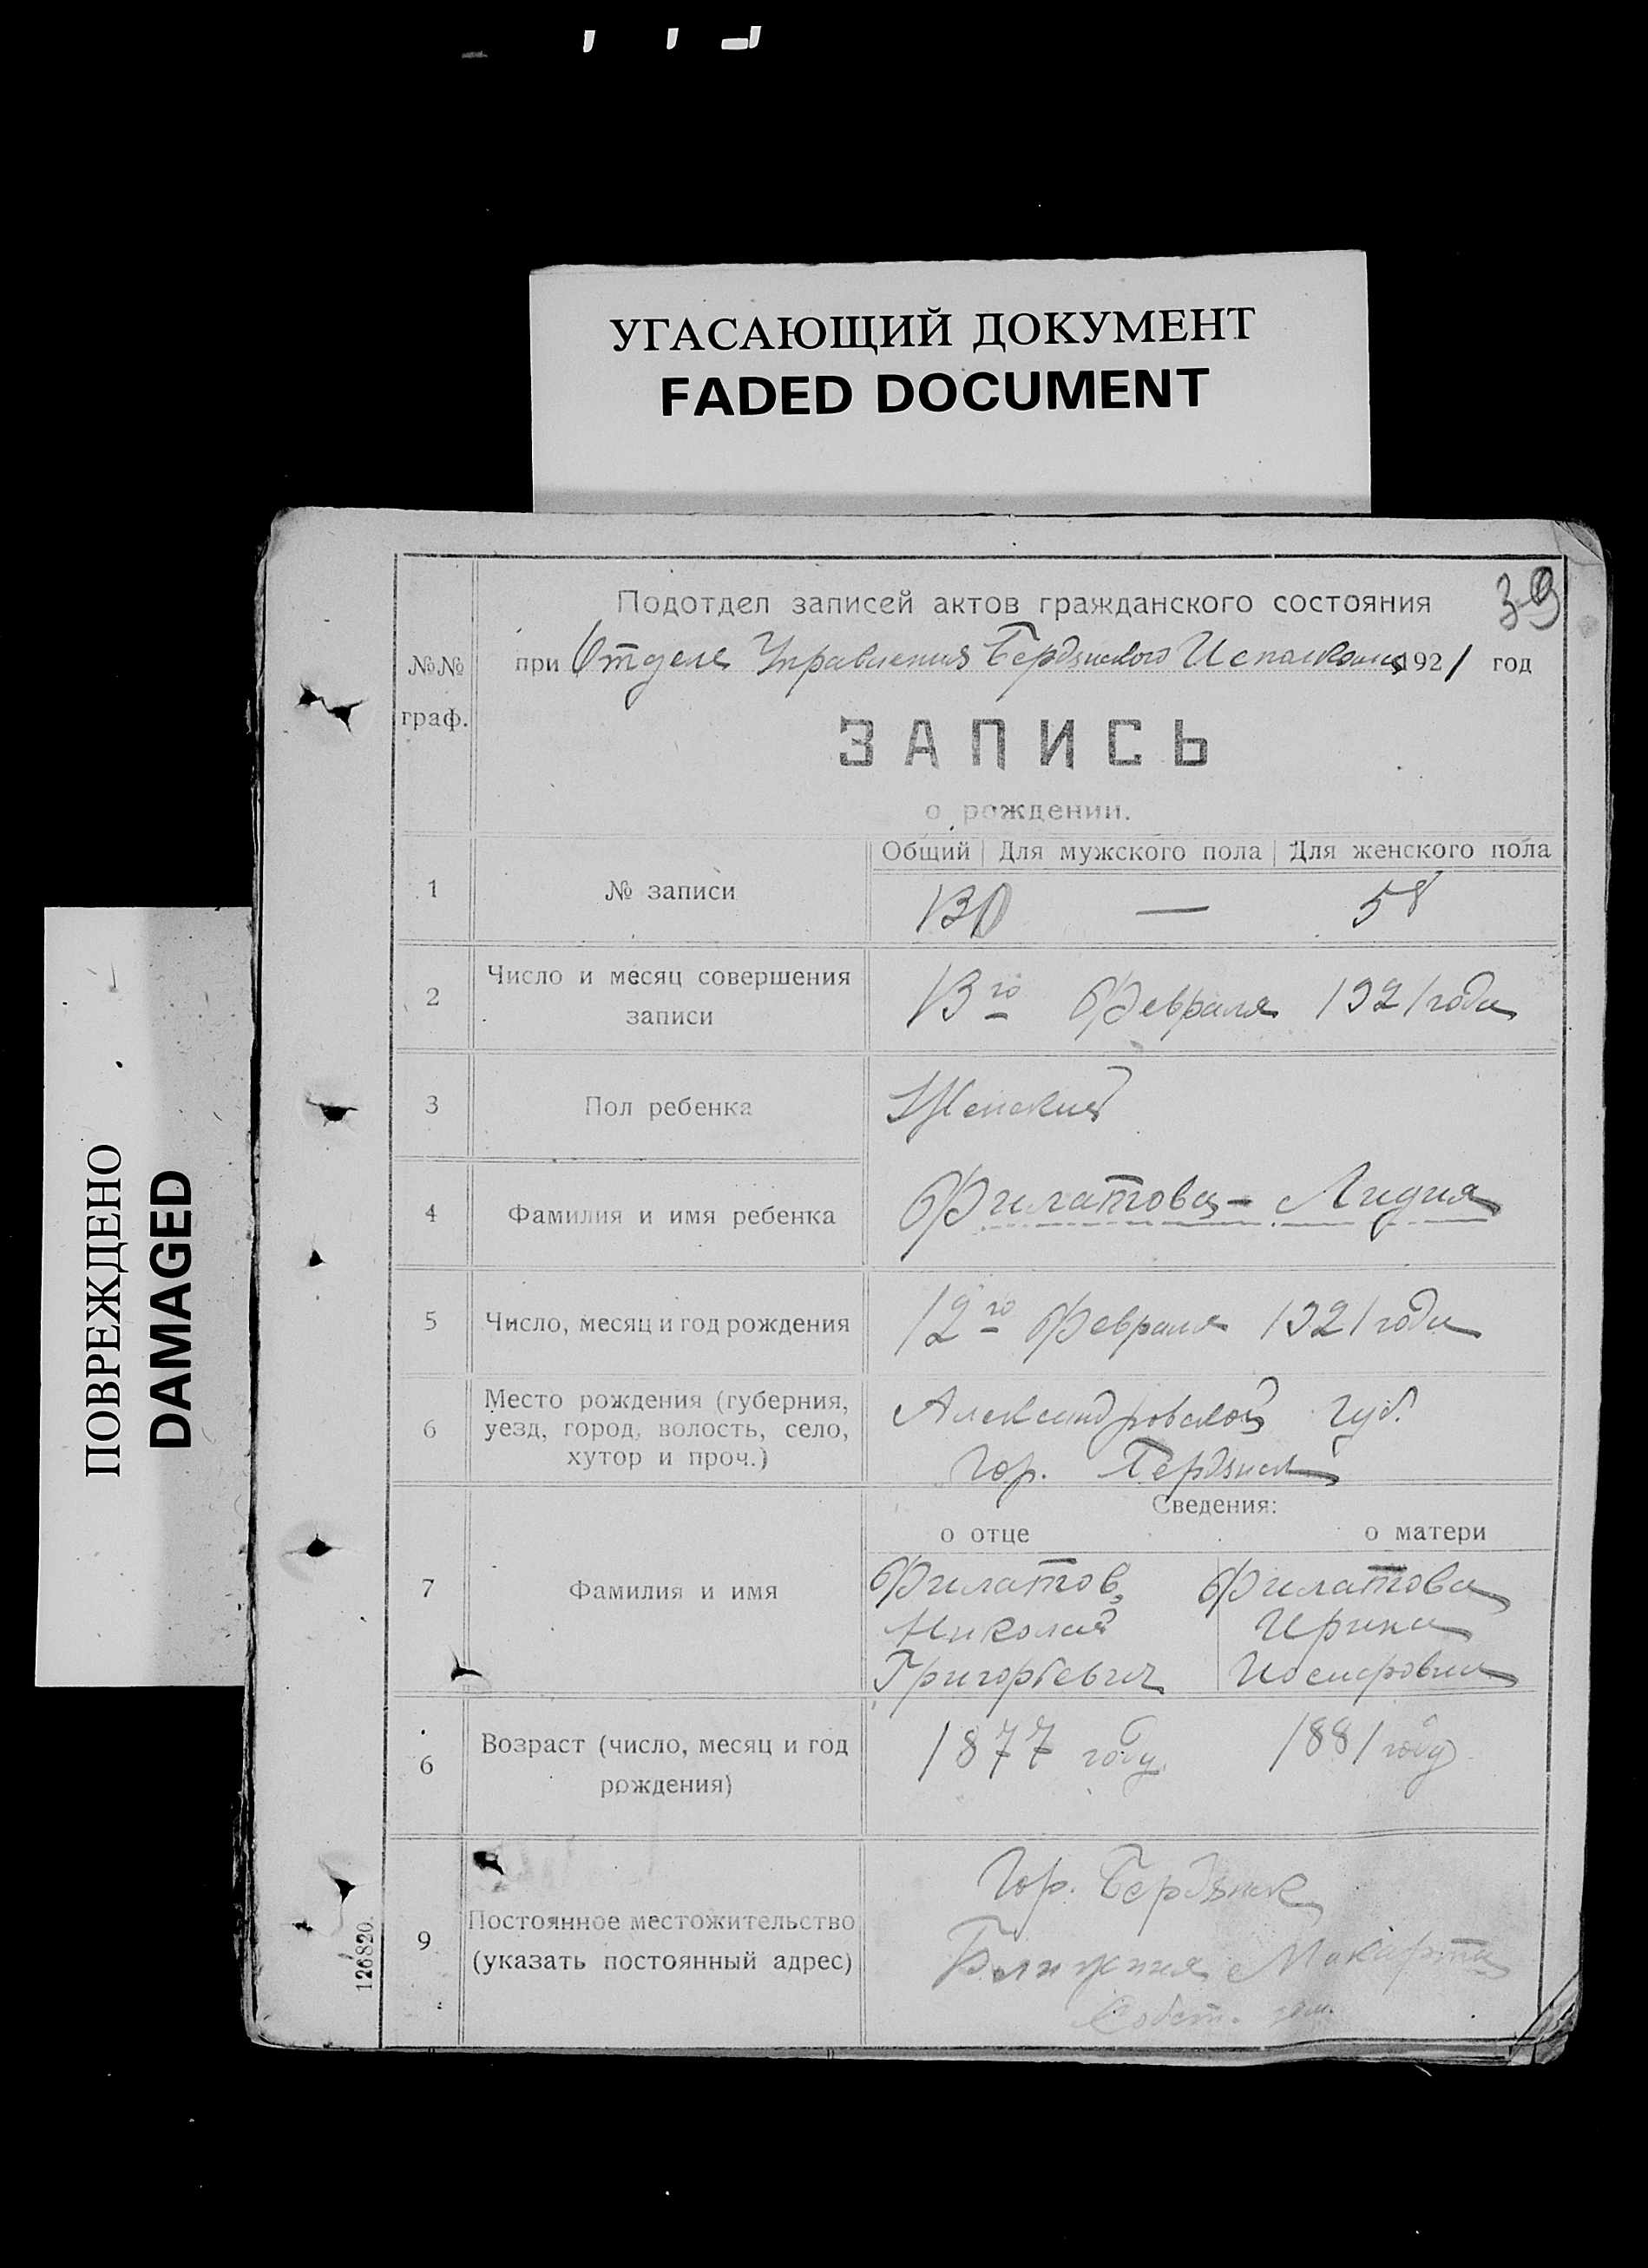 УГАСАЮЩИЙ ДОКУМЕНТ
FADED DOCUMENT
ПОВРЕЖДЕНО
DAMAGED
39
Подотдел записей актов гражданского состояния
№№ граф.
при Отделе Управления Бердянского Исполкома 1921 год
ЗАПИСЬ
о рождении.
Общий | Для мужского пола | Для женского пола
1 № записи 130 — 58
2 Число и месяц совершения записи 13го Февраля 1921 года
3 Пол ребенка Женский
4 Фамилия и имя ребенка Филатова - Лидия
5 Число, месяц и год рождения 12го Февраля 1921 года
6 Место рождения (губерния, Александровской губ.
уезд, город, волость, село, гор. Бердянск
хутор и проч.)
Сведения:
о отце о матери
7 Фамилия и имя Филатов Филатова
Николай Ирина
Григорьевич Иосифовна
6 Возраст (число, месяц и год 1877 году 1881 году
рождения)
9 Постоянное местожительство Гор. Бердянск
(указать постоянный адрес) Ближняя Макорта
Собст. дом.
126820.